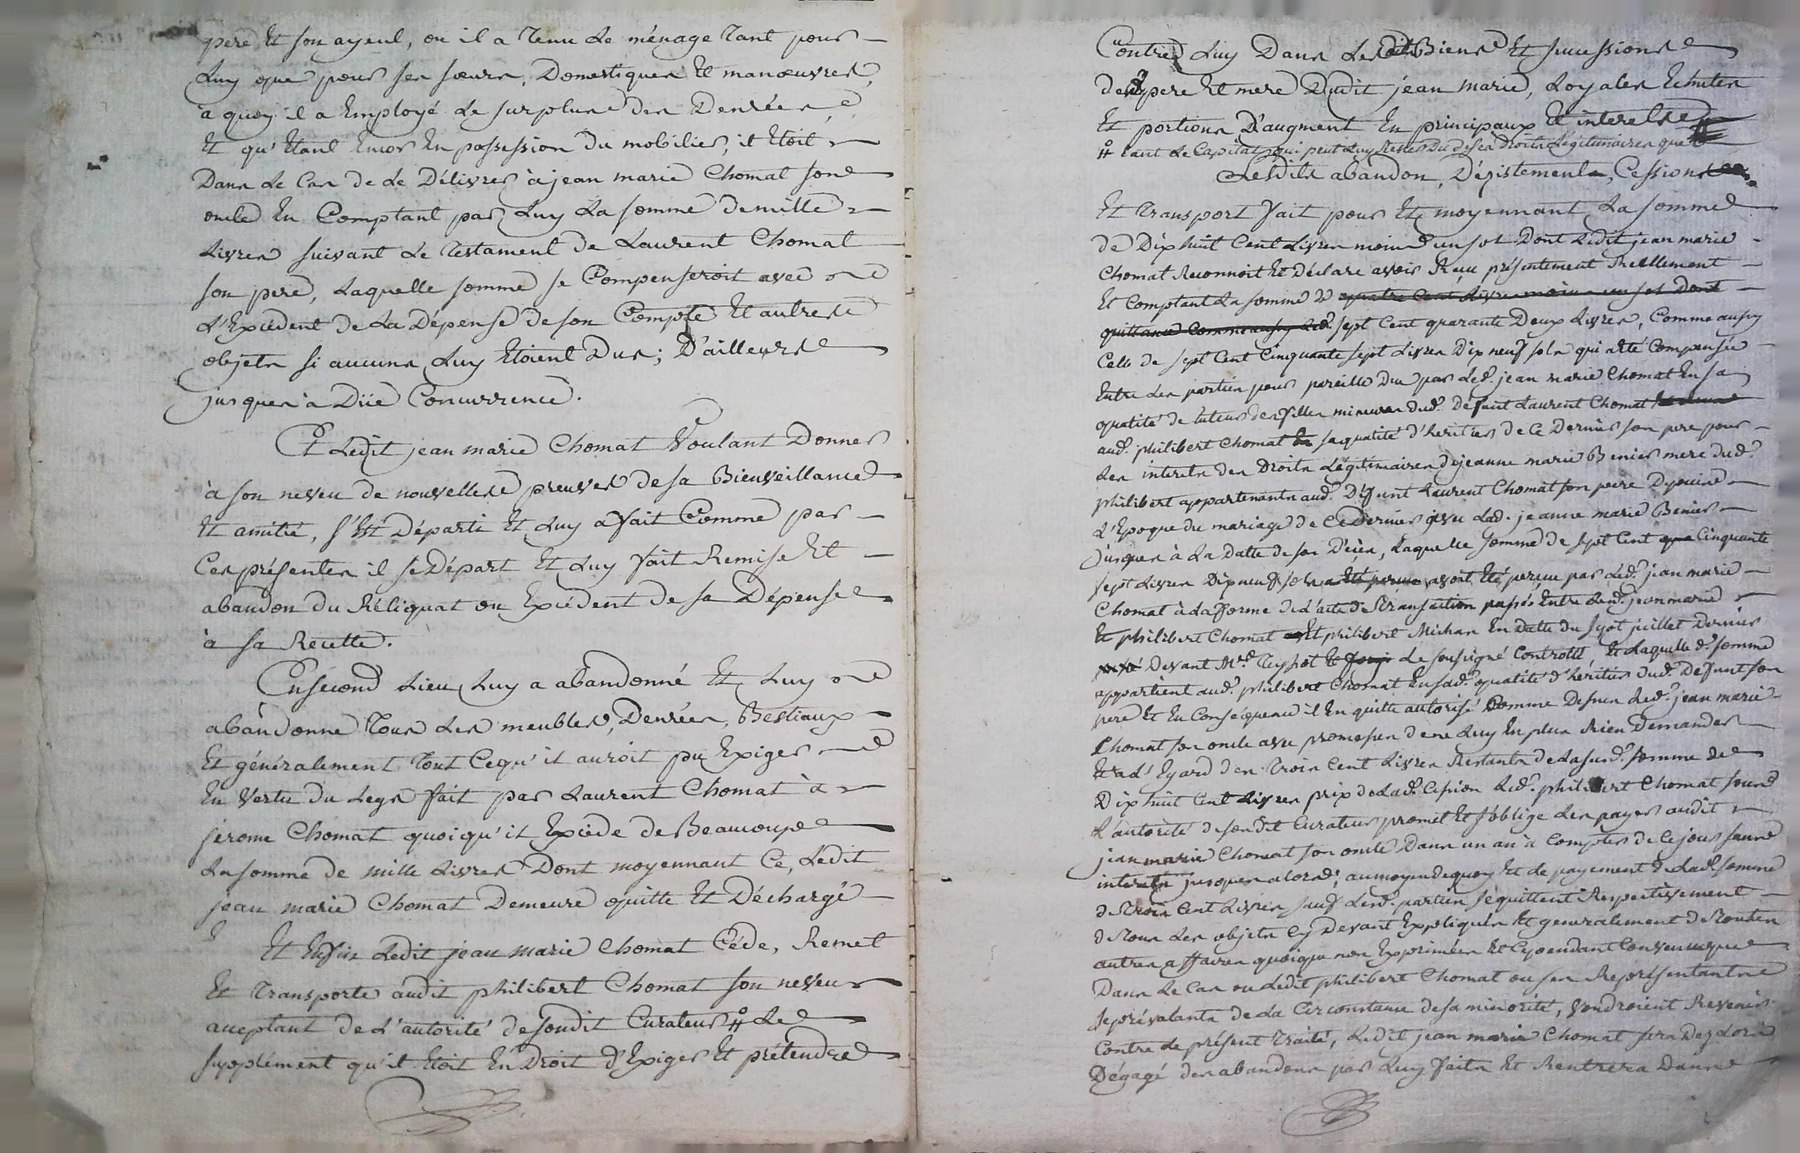 pere et son ayeul, ou il a tenu le ménage tant pour
luy que pour ses sœurs, Domestiques et manœuvres,
à quoy il a Employé le surplus des Denrées
et qu'Etant Encor En possession du mobilier, il Etoit
Dans le Cas de le Délivrer à jean marie Chomat son
oncle En Comptant par luy la somme de mille
livres suivant le testament de Laurent Chomat
son pere, laquelle somme se Compenseroit avec
l'Excédent de la Dépense de son Compte et autres
objets si aucuns luy Etoient Dus; D'ailleurs
jusques à Düe Concurrence.
Et ledit jean marie Chomat Voulant Donner
à son neveu de nouvelles preuves de sa Bienveillance
et amitié, s'Est Départi et luy a fait Comme par
Ces présentes il se Départ et luy fait Remise et
abandon du Réliquat ou Excédent de sa Dépense
à sa Recette.
En second lieu, luy a abandonné et luy
abandonne tous les meubles, Denrées, Bestiaux
et généralement tout Ce qu'il auroit pu Exiger
En vertu du legs fait par Laurent Chomat à
jerome Chomat quoiqu'il Excède de Beaucoup
la somme de mille livres Dont moyennant Ce, ledit
jean marie Chomat Demeure quitte et Déchargé
Et Enfin ledit jean marie Chomat Cède, Remet
et transporte audit philibert Chomat son neveu
acceptant de l'autorité de sondit Curateur # le
supplément qu'il Etoit En Droit d'Exiger et prétendre
Contre luy Dans les dits Biens et successions
des pere et mere Dudit jean marie, loyales Echutes
et portions D'augment En principaux et interets
# tant le Capital qui peut luy Rester Du de ses Droits légitimaires que
Lesdits abandon, Dépistement, Cession
et transport fait pour et moyennant la somme
de Dix huit Cent livres moins un sol Dont ledit jean marie
Chomat Reconnoit et Déclare avoir Reçu présentement Réellement
et Comptant la somme de quatre Cent livres moins un sol Dont
quittance Comme aussy led. sept Cent quarante Deux livres, Comme aussy
Celle de sept Cent Cinquante sept livres Dix neuf sols qui a été Compensée
Entre les parties pour pareille Due par led. jean marie Chomat En sa
qualité de tuteur des filles mineures dud. Défunt Laurent Chomat
aud. philibert Chomat En sa qualité d'héritier de Ce Dernier son pere pour
les interets des Droits légitimaires de jeanne marie Benier mere dud.
philibert appartenants aud. Défunt Laurent Chomat son pere Depuis
l'Epoque du mariage de Ce Dernier avec lad. jeanne marie Benier
jusques à la Datte de son Décès, laquelle somme de sept Cent Cinquante
sept livres Dix neuf sols a Eté perçue avoit Eté perçue par led. jean marie
Chomat à la forme de l'acte de transaction passés Entre led. jean marie
et philibert Chomat et philibert Michas En datte du sept juillet Dernier
Devant Me. Teyssot le soussigné Controllé, et laquelle d. somme
appartient aud. philibert Chomat En sad. qualité d'héritier dud. Défunt son
pere et En Conséquence il En quitte autorisé Comme Dessus led. jean marie
Chomat son oncle avec promesse de ne luy En plus Rien Demander
Et à l'Egard des trois Cent livres Restants de la susd. somme de
Dix huit Cent livres prix de lad. Cession led. philibert Chomat sous
l'autorité de sondit Curateur promet et s'oblige les payer audit
jean marie Chomat son oncle Dans un an à Compter de Ce jour sans
interets jusques alors; au moyen de quoy et de payement de lad. somme
de trois Cent livres, lesd. parties se quittent Respectivement
de tous les objets Cy Devant Expliqués et generalement de toutes
autres affaires quoique non Exprimées et Cependant Convenu que
Dans le Cas ou ledit philibert Chomat ou ses Représentants
se prévalants de la Circonstance de sa minorité, voudroient Revenir
Contre le présent traité, ledit jean marie Chomat sera Dez lors
Dégagé des abandons par luy faits et Rentrera Dans